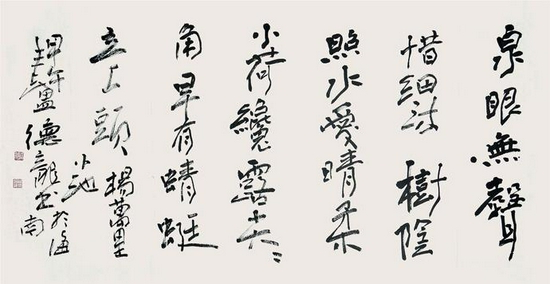 泉眼無聲
惜細流樹陰
照水愛晴柔
小荷纔露尖〻
角早有蜻蜓
立上頭楊萬里
小池
甲午德龍書於海
南